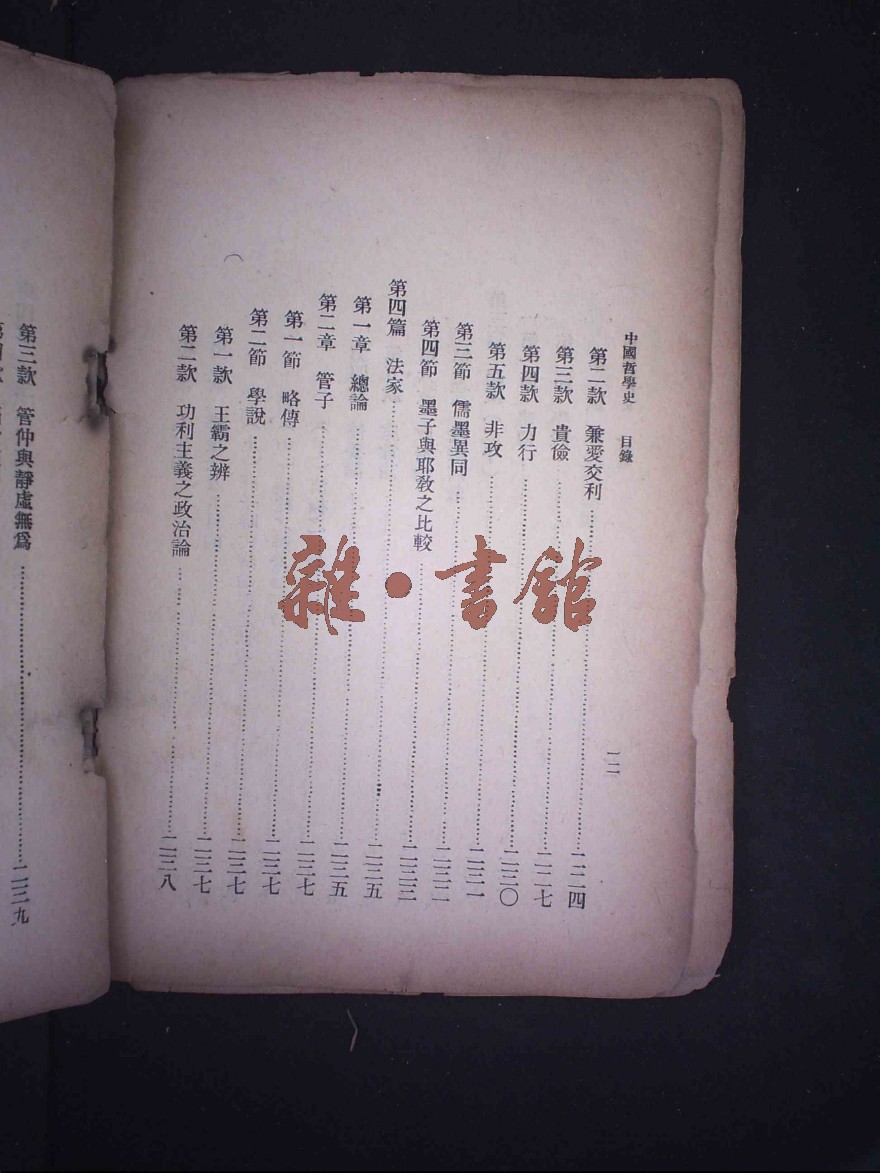 中國哲學史 目錄 一二
第二款 兼愛交利……二二四
第三款 貴儉……二二七
第四款 力行……二三〇
第五款 非攻……二三一
第三節 儒墨異同……二三二
第四節 墨子與耶敎之比較……二三三
第四篇 法家……二三五
第一章 總論……二三五
第二章 管子……二三七
第一節 略傳……二三七
第二節 學說……二三七
第一款 王霸之辨……二三七
第二款 功利主義之政治論……二三八
第三款 管仲與靜虛無爲……二三九
雜·書館